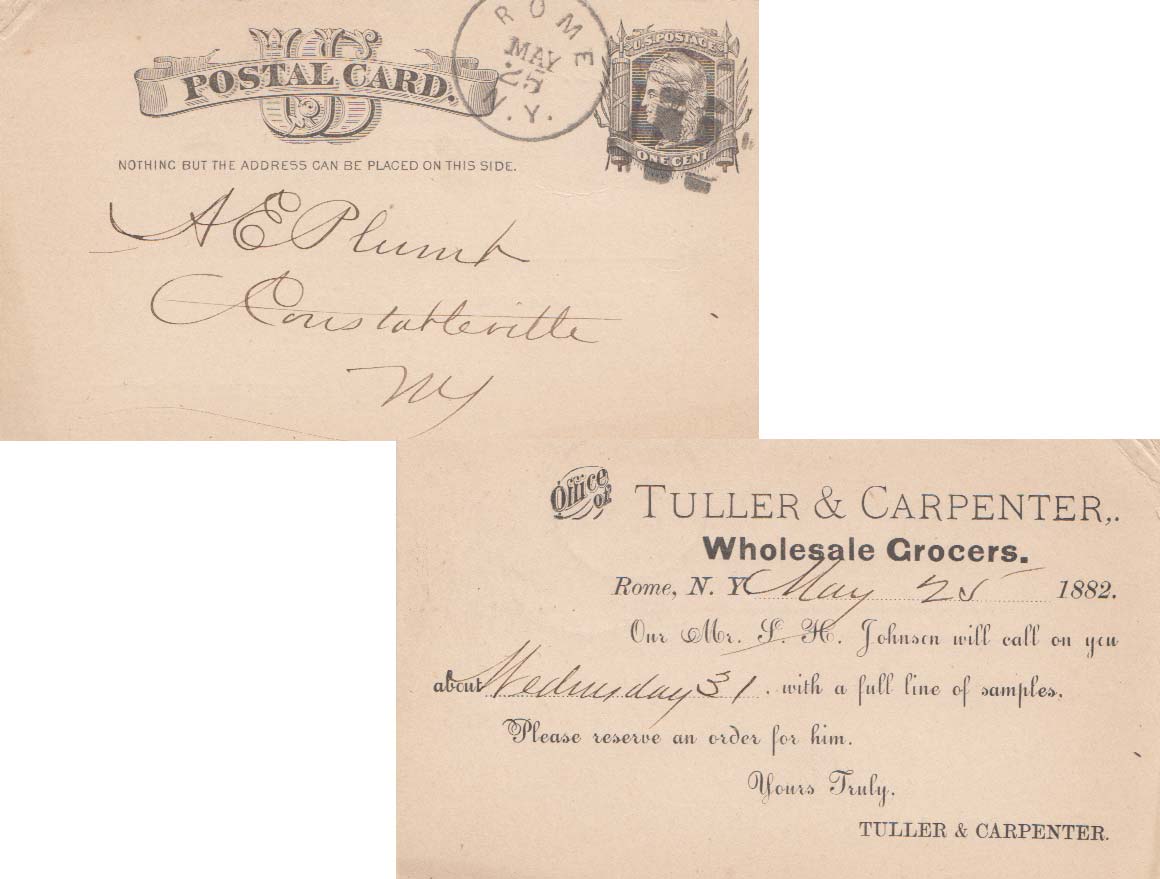 US
POSTAL CARD.
ROME
MAY
25
N.Y.
U.S. POSTAGE
ONE CENT
NOTHING BUT THE ADDRESS CAN BE PLACED ON THIS SIDE.
A E Plumb
Constableville
NY
Office of TULLER & CARPENTER,.
Wholesale Grocers.
Rome, N. Y. May 25 1882.
Our Mr. S. H. Johnson will call on you
about Wednesday 31. with a full line of samples.
Please reserve an order for him.
Yours Truly.
TULLER & CARPENTER.